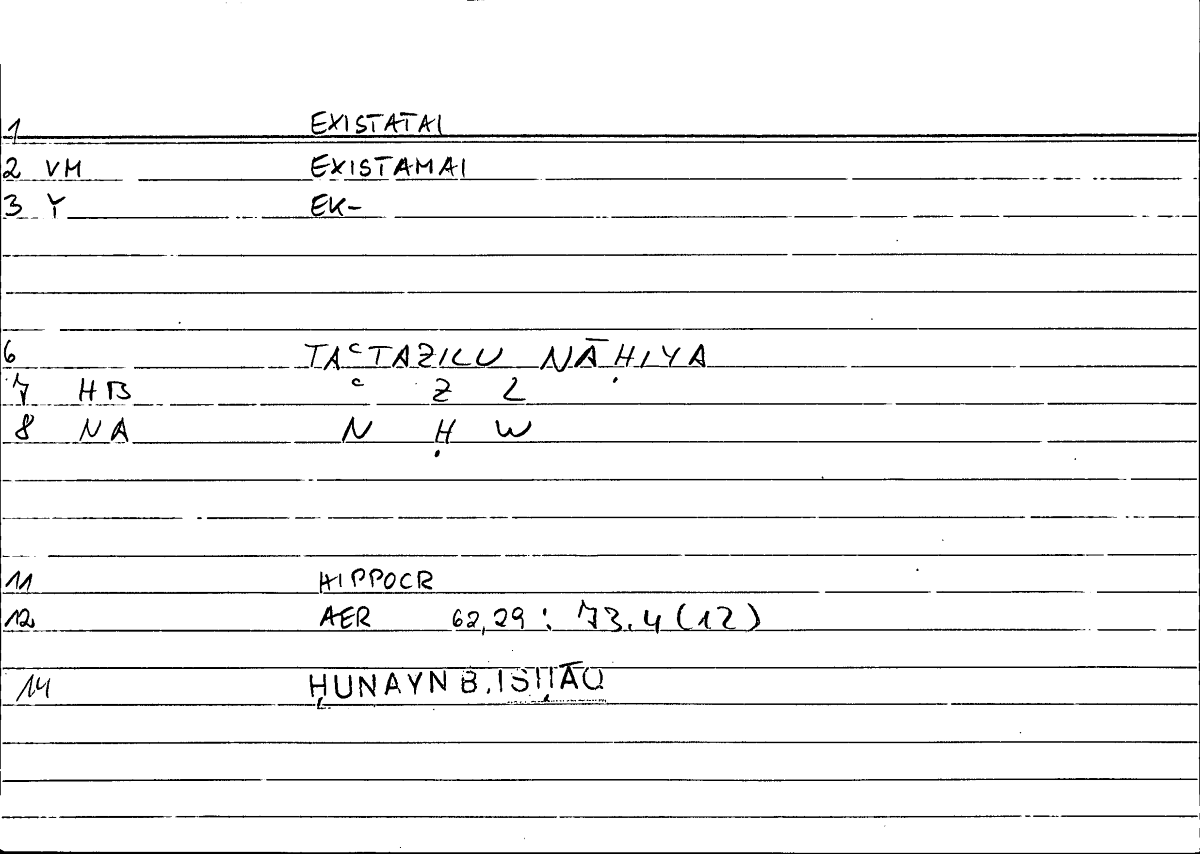 1 EXISTATAI
2 VM EXISTAMAI
3 Y EK-
6 TAᶜTAZILU NĀḤIYA
7 HB ᶜ Z L
8 NA N Ḥ W
11 HIPPOCR
12 AER 62,29 : 73.4 (12)
14 ḤUNAYN B. ISḤĀQ